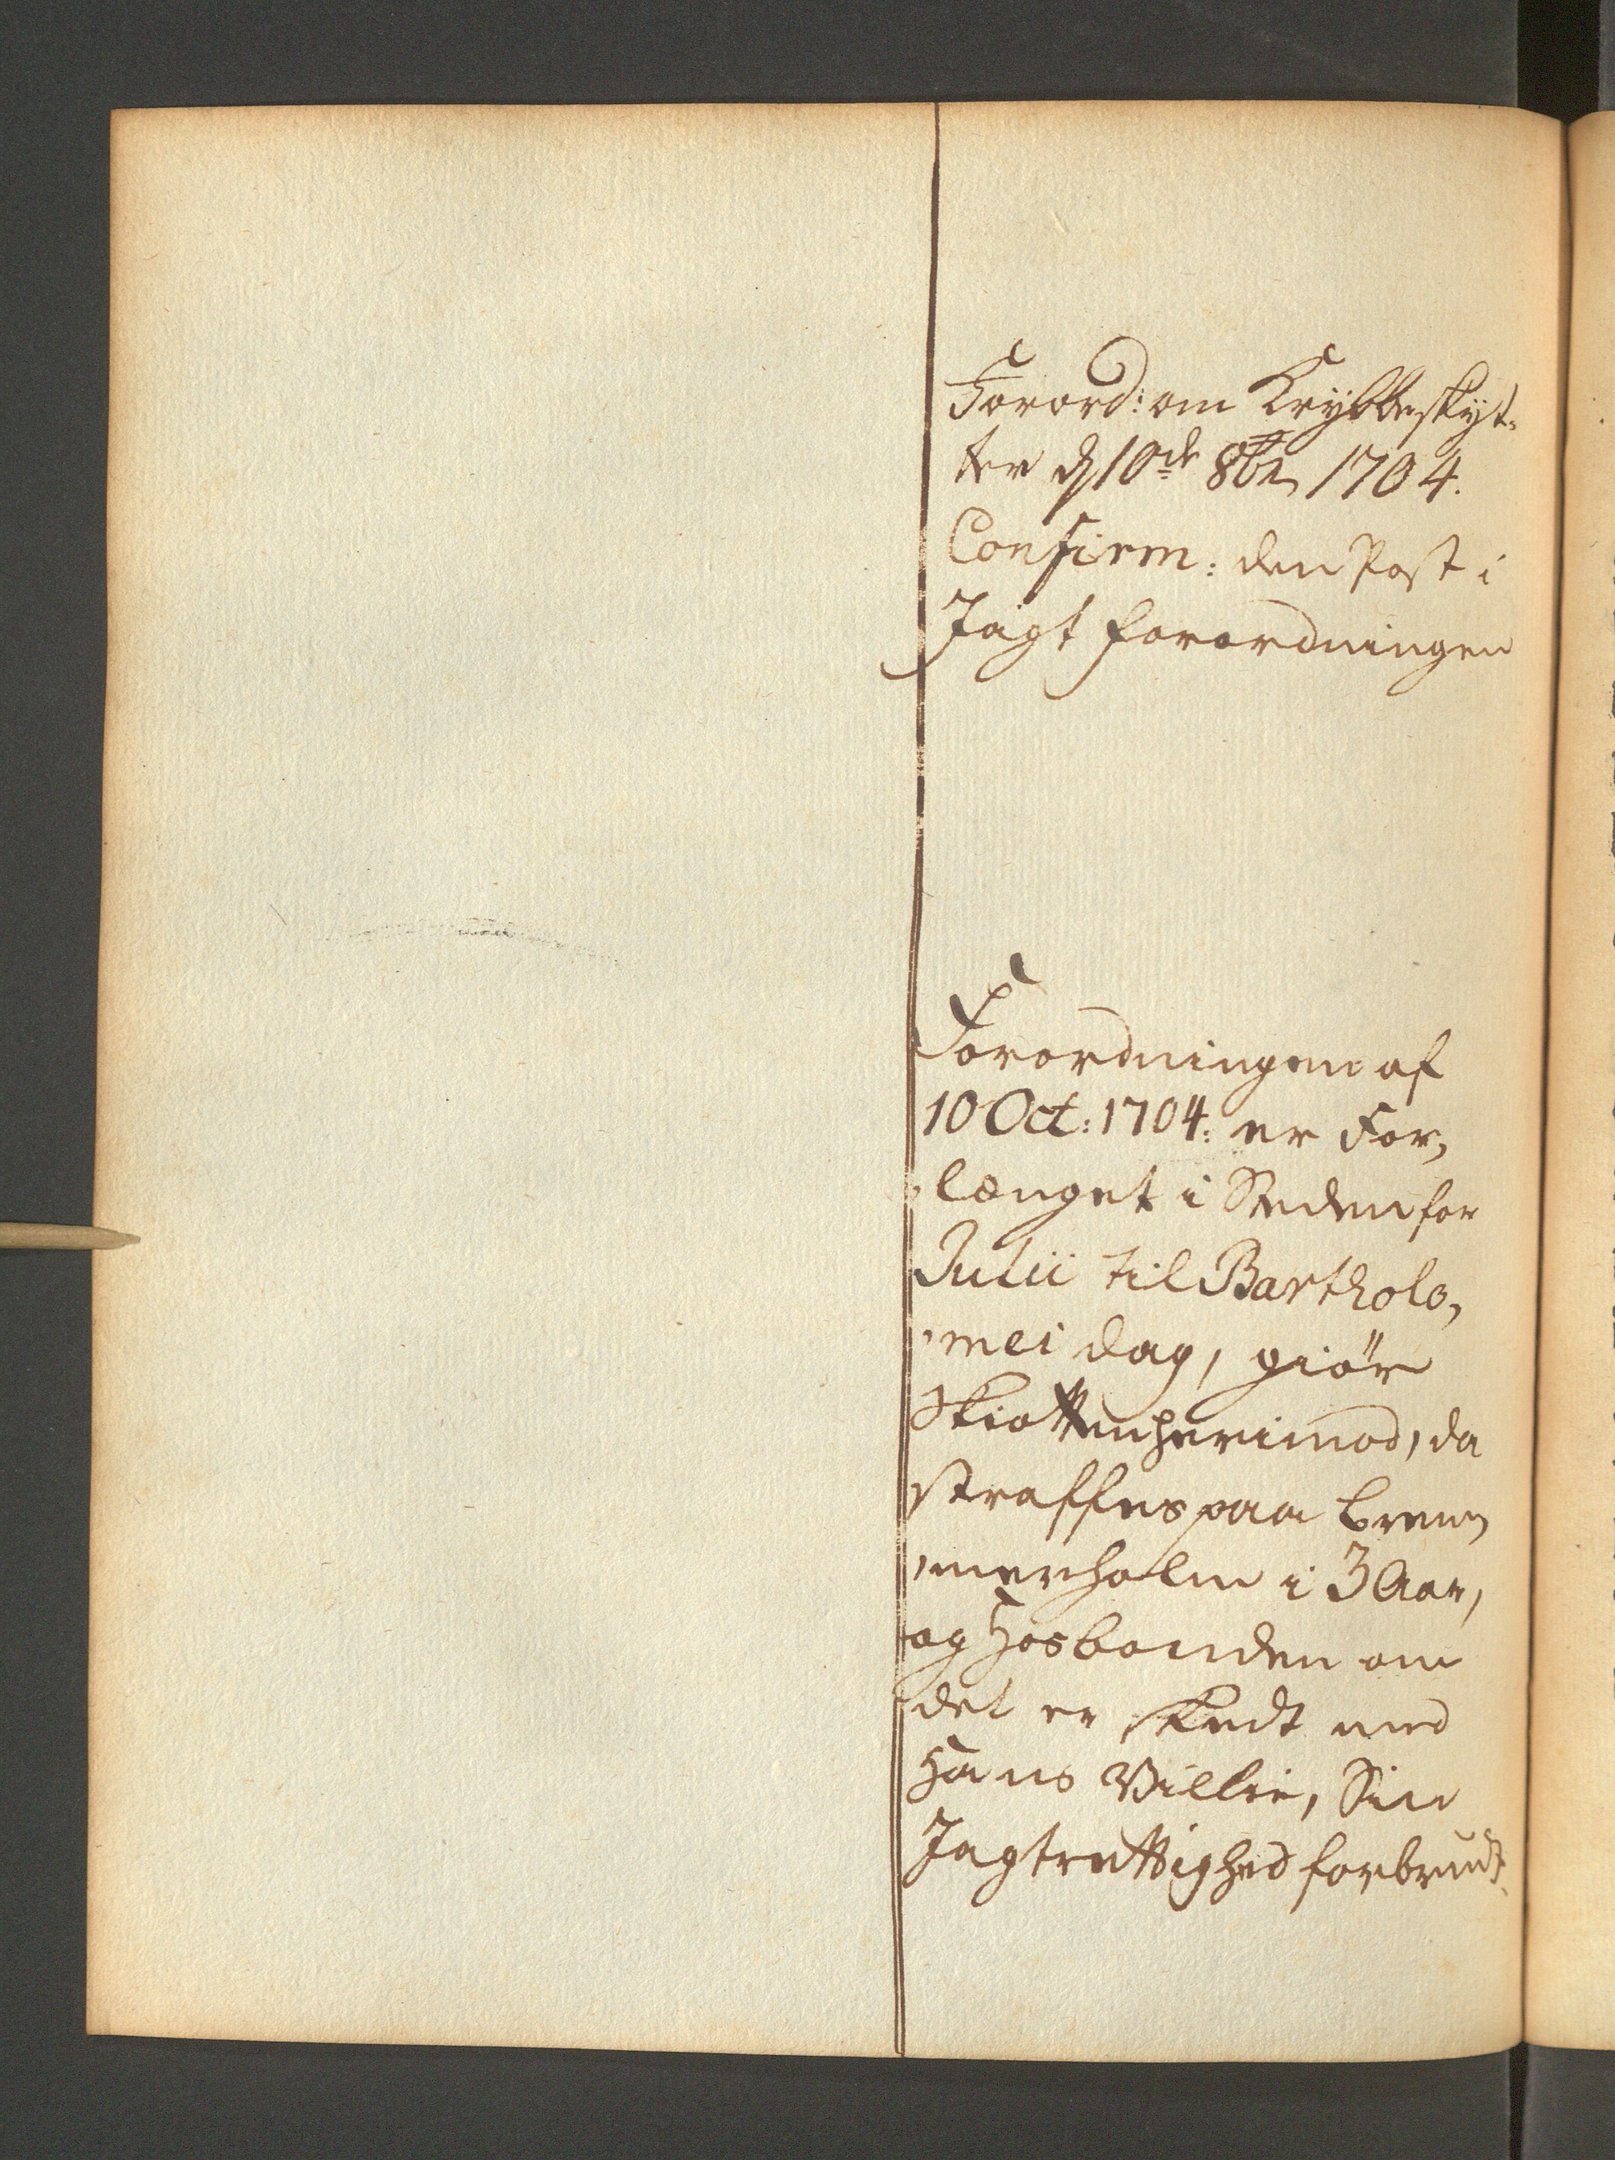 Forord: om Krybbeskyt-
ter d 10de 8br 1704.
Confirm: den Post i
Jagt forordningen
Forordningen af
10 Oct: 1704: er For,
længet i Steden for
Julii til Bartholo,
mei dag, giör
Skiøtten herimod, da
straffes paa Brem,
merholm i 3 Aar,
og Hosbonden om
det er skedt med
Hans Villie, Sin
Jagtrettighed forbrudt